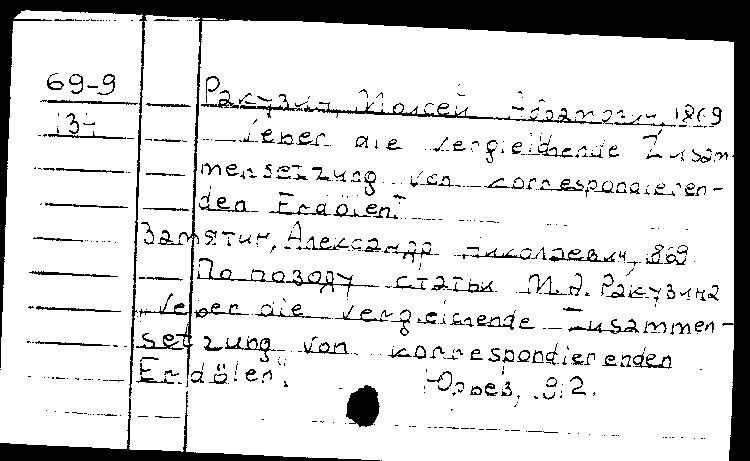 69-9
134
Ракузин, Моисей Абрамович, 1869
Ueber die vergleichende Zusam-
mensetzung von correspondieren-
den Erdölen.
Замятин, Александр Николаевич, 1869
По поводу статьи М.А. Ракузина
„Ueber die vergleichende Zusammen-
setzung von korrespondierenden
Erdölen". Юрьев,